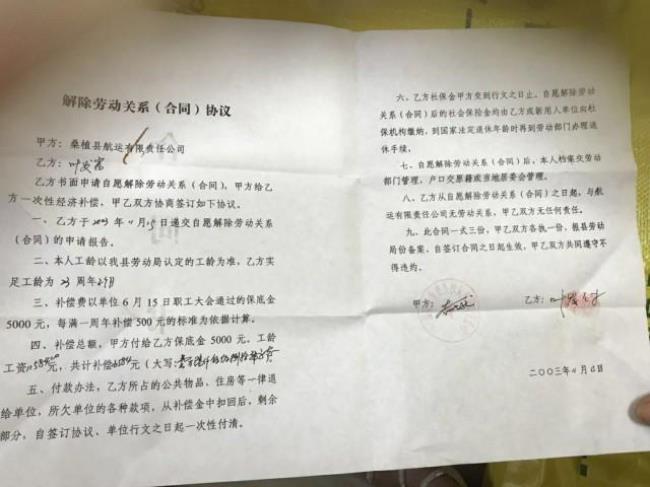 解除劳动关系（合同）协议
甲方：桑植县航运有限责任公司
乙方：
乙方书面申请自愿解除劳动关系（合同），甲方给乙
方一次性经济补偿，甲乙双方协商签订如下协议。
一、乙方于2003年11月15日递交自愿解除劳动关系
（合同）的申请报告。
二、本人工龄以我县劳动局认定的工龄为准，乙方实
足工龄为 周年
三、补偿费以单位 6 月 15 日职工大会通过的保底金
5000 元，每满一周年补偿 500 元的标准为依据计算。
四、补偿总额，甲方付给乙方保底金 5000 元，工龄
工资 元，共计补偿 元（大写
五、付款办法，乙方所占的公共物品、住房等一律退
给单位，所欠单位的各种款项，从补偿金中扣回后，剩余
部分，自签订协议、单位行文之日起一次性付清。
六、乙方社保金甲方交到行文之日止，自愿解除劳动
关系（合同）后的社会保险金均由乙方或新用人单位向社
保机构缴纳，到国家法定退休年龄时再到劳动部门办理退
休手续。
七、自愿解除劳动关系（合同）后，本人档案交劳动
部门管理，户口交原籍或当地居委会管理。
八、乙方从自愿解除劳动关系（合同）之日起，与航
运有限责任公司无劳动关系，甲乙双方无任何责任。
九、此合同一式三份，甲乙双方各执一份，报县劳动
局份备案。自签订合同之日起生效，甲乙双方共同遵守不
得违约。
甲方： 乙方：
二00三年11月 日